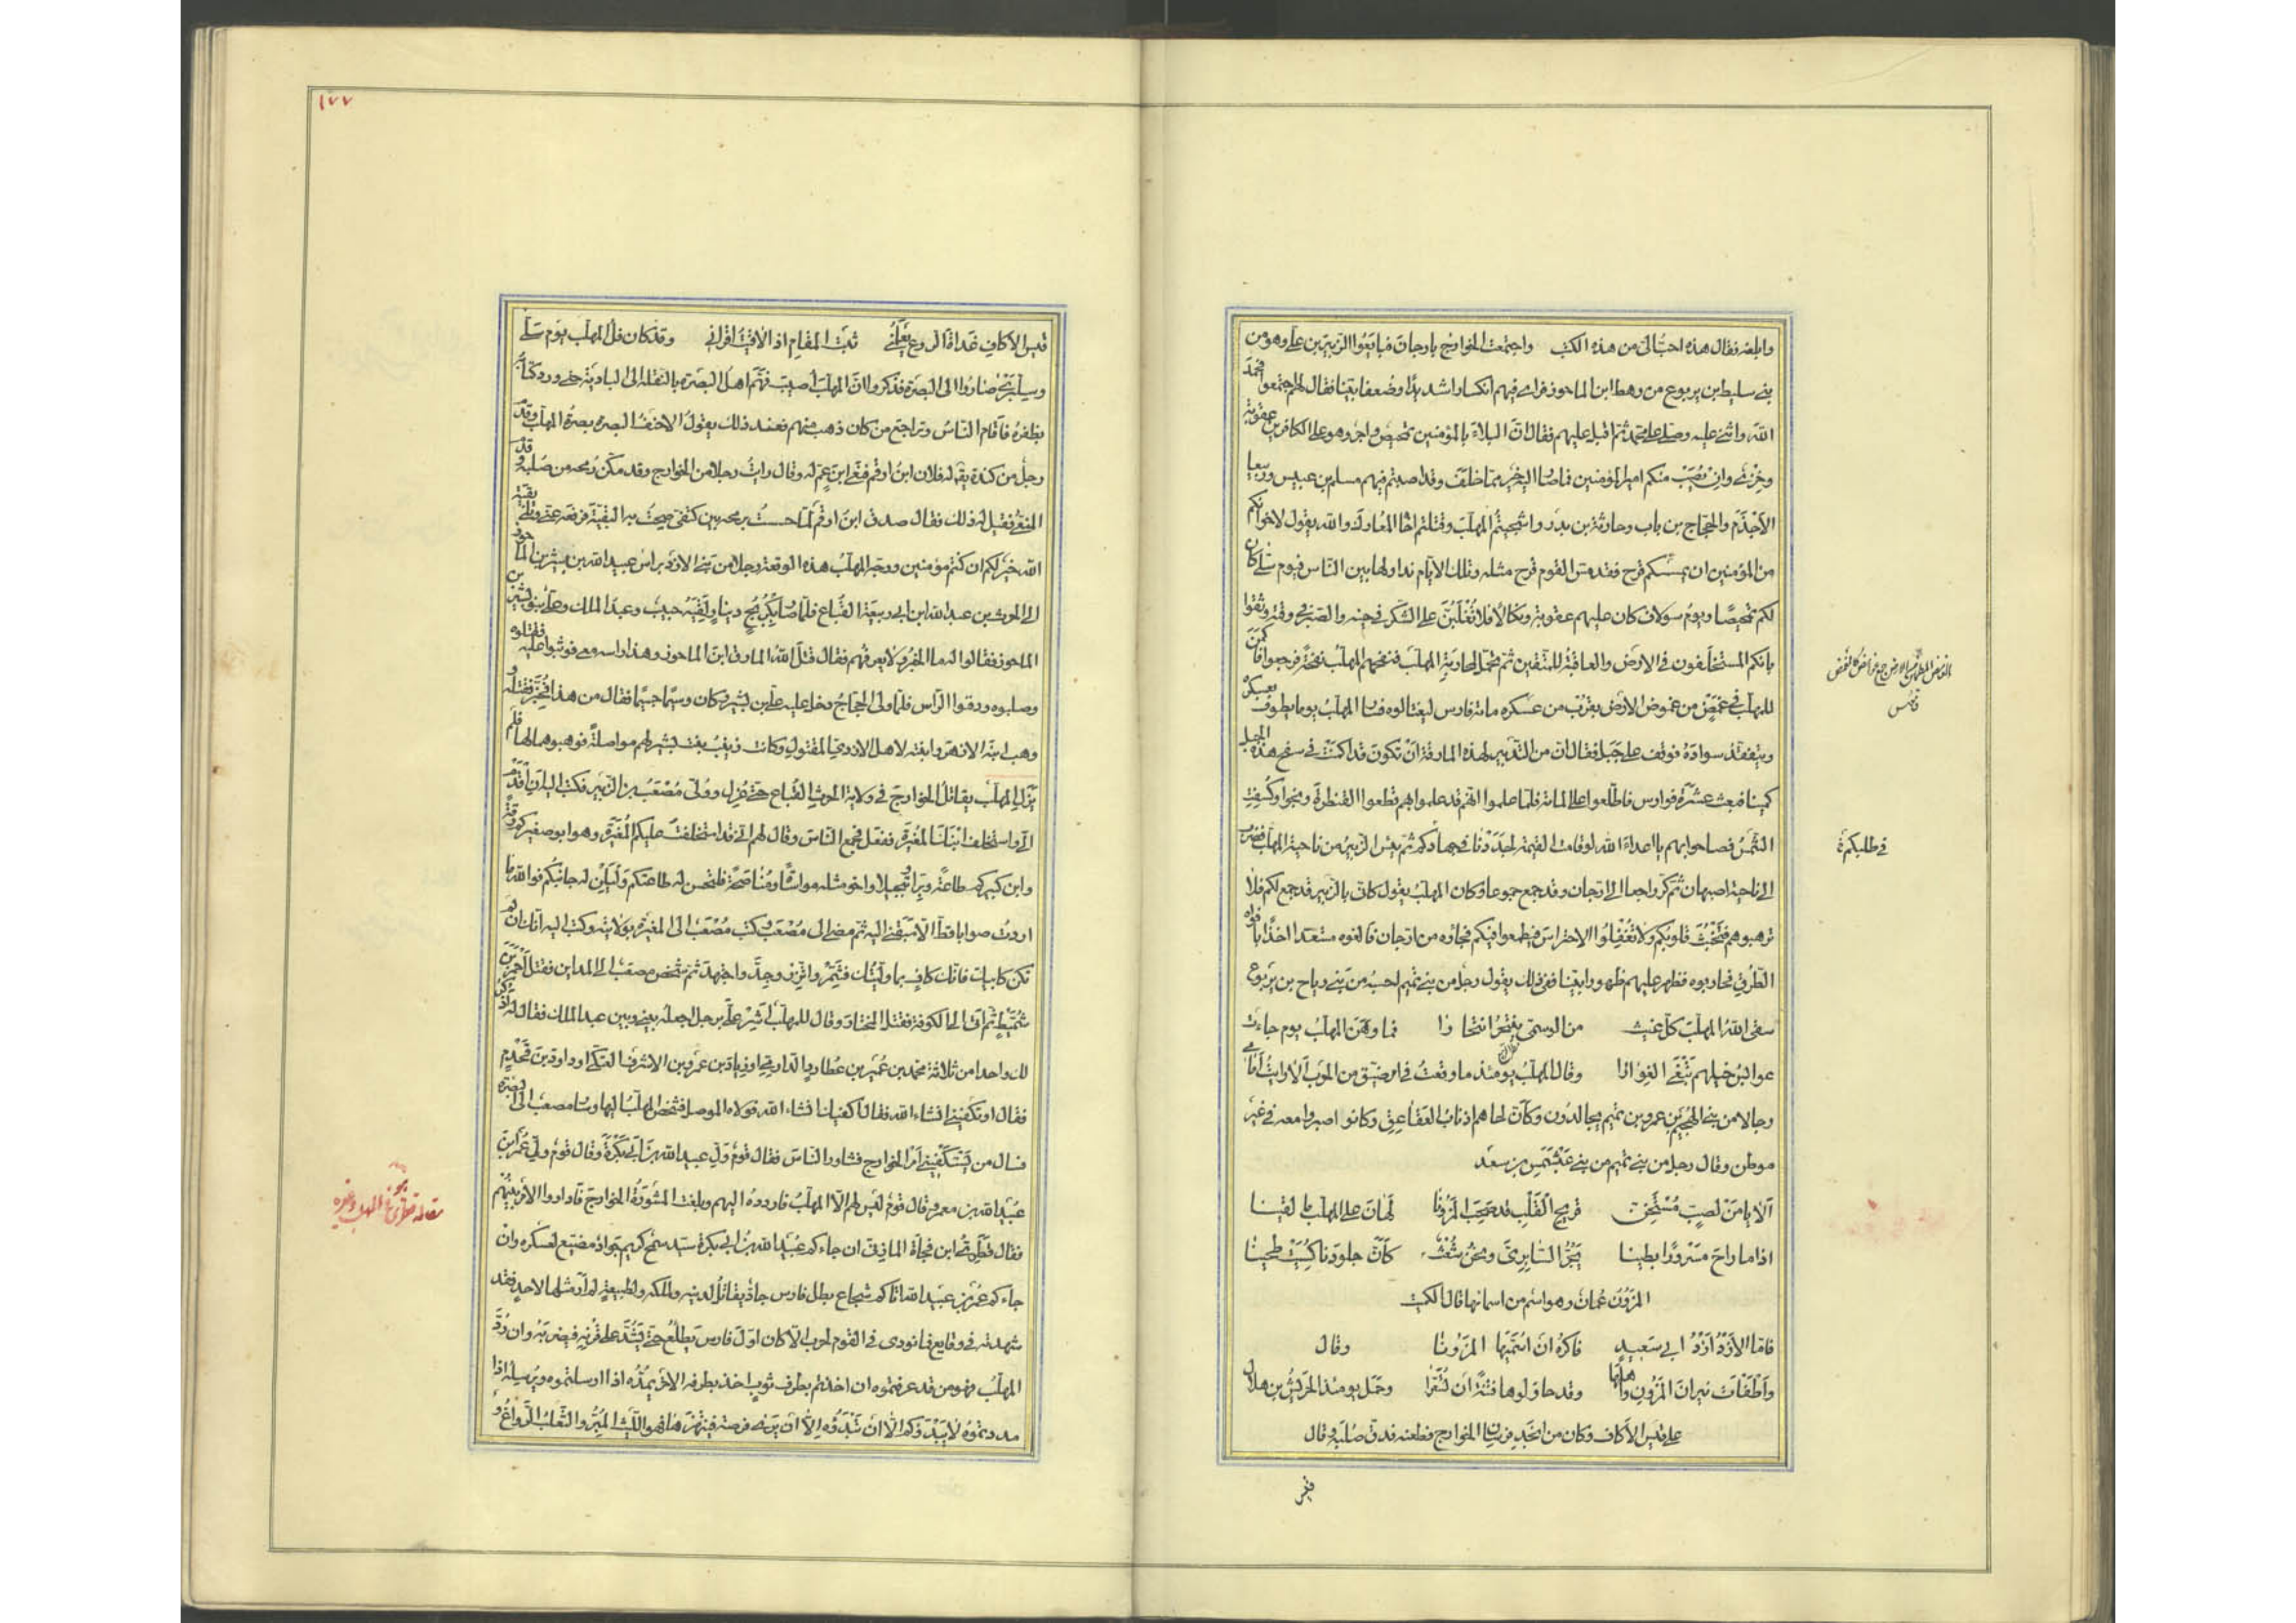 وابلغه فقال هذه احبّ الىّ من هذه الكتب واجتمعت الخوارج بارجان فبايعوا الزبير بن على وهو من
بنى سليط بن يربوع من رهط ابن الماحوز فراى فيهم انكسارا شديدًا وضعفا بيّنا فقال لهم اجتمعوا فحمد
الله واثنى عليه وصلى على محمد ثم اقبل عليهم فقال انّ البلاءَ بالمؤمنين تمحيص واجر وهو على الكافرين عقوبة
وخِزْىٌ وانْ يُصَبْ منكم امير المؤمنين فما صار اليه خير مما خلف وقد اصبتم فيهم مسلم بن عبيس وربيعا
الاَجْذَمَ والحجّاج بن باب وحارثة بن بدر واشجيتُم المهلّبَ وقتلتم اخاه المُعارِكَ والله يقول لاخوانكم
من المؤمنين ان يمسسكم قرح فقد مسّ القوم قرح مثله وتلك الايّام نداولها بين النّاس فيوم سِلّى كان
لكم تمحيصًا ويوم سولاف كان عليهم عقوبة ونكالا فلا تُغْلَبُنّ على الشكر فى حينه والصبر فى وقته وثقوا
بانكم المستخلَفون فى الارض والعاقبة للمتقين ثم تحمّل لمحاربة المهلّب فنفحهم المهلّب نفحةً فرجعوا فاكمن
للمهلّب فى غمضٍ من غموض الارض يقرب من عسكره مائة فارس ليغتالوه فسار المهلّبُ يوما يطوف بعسكره
ويتفقد سوادَهُ فوقف على جَبَل فقال ان من التدبير لهذه المارقة انْ تكونَ قد اكمنَتْ فى سفح هذا الجبل
كمينا فبعث عشرَةَ فوارس فاطّلعوا على المائة فلمّا علموا انّهم قد علموا بهم قطعوا القنطرةَ ونجوا وكُسِفت
الشّمسُ فصاحوا بهم يا اعداءَ الله لو قامت القيمة لجَدَدْنا فى جهادكم ثم يئس الزبير من ناحية المهلّب فضرب
الى ناحية اصبهان ثم كرّ راجعا الى ارّجان وقد جمع جموعا وكان المهلّبُ يقول كانّى بالزبير قد جمع لكم فلا
ترهبوهم فتَخْبُثَ قلوبكم ولا تُغْفِلُوا الاحتراسَ فيطمعوا فيكم فجاؤه من ارّجان فالفوه مستعدّا اخذًا بافواه
الطُرُقِ فحاربوه فظهر عليهم ظهورا بيّنا ففى ذلك يقول رجل من بنى تميم احسبه من بنى رياح بن يربوع
سقى اللهُ المهلّبَ كلّ غيث من الوسمىّ ينتحر انتحارا فما وَهَنَ المهلّبُ يوم جاءت
عوابسُ خيلهم تَبْغى الغِوارا وقال المهلّبُ يومئذ ما وقعتُ فى امر ضيّق من الحرب الا رايتُ امامى
رجالا من بنى الهجيم بن عمرو بن تميم يجالدُون وكانّ لحاهم اذناب العَقاعق وكانوا صبروا معه فى غير
موطن وقال رجل من بنى تميم من بنى عَبْشَمْسِ بن سعد
اَلا يا مَنْ لصبٍّ مُسْتَحِنّ قريح القَلبِ قد صحب المَزُونَا لَهَانَ على المهلّب ما لقينا
اذا ما راحَ مَسْروُرًا بطينا يَجُرُّ السّابِرِىَّ ونحن شُعْثٌ كاَنّ جلودَنا كُسِيَتْ طحينا
المَزُونُ عُمان وهو اسم من اسمائها قال الكميت
فامّا الاَزْدُ اَزْدُ ابى سَعيدٍ فاكرَهُ ان اُسَمِّيَها المَزُونا وقال
واَطْفَأتَ نيران المَزُون واهلَها وقد حاولوها فتنَةً اَن تُسَعَّرا وحمل يومئذ الحَريشُ بن هلال
على قيس الاكاف وكان من انجد فرسان الخوارج فطعنه فدقّ صُلبَه وقال
قيس
الغمض المطمئن من الارض جمع
فى طلبكم
١٧٧
قيس الاكافِ غداةَ الروع يَعْلَمُنى ثَبْتَ المقام اذا لاقيتُ اقرانى وقد كان فلّ المهلّب يوم سِلّى
وسِلّبرى صاروا الى البصرة فذكروا انّ المهلّب اصيبَ فهَمّ اهل البصَرة بالنقلة الى البادية حتى ورد كتابه
بظفره فاقام النّاسُ وتراجع من كان ذهب منهم فعند ذلك يقولُ الاحنفُ البصرة بصرةُ المهلّب وقدم
رجل من كندة يقال له فلان ابنُ ارقم فنعى ابنَ عمّ له وقال رايتُ رجلا من الخوارج وقد مكّن رمحه من صُلبه وقد
المنعىّ فقيل له ذلك فقال صدق ابنُ ارقم لما حسستُ برمحه بين كتفى صِحْتُ به البقيّة فرفعه عنّى وتلا بقيّة
الله خير لكم ان كنتم مؤمنين ووجّه المهلّبُ هذه الوقعة رجلا من الازد براس عبيد الله بن بشير بن الماحوز
الى الحرث بن عبد الله ابن ابى ربيعة القُبَاع فلمّا صار بكُرْبُجِ دينارٍ لقيَهُ حبيبٌ وعبدُ الملك وعلىّ بنو بشير بن
الماحوز فقالوا له ما الخبر ولا يعرفهم فقال قتل اللهُ المارقَ ابنَ الماحوز وهذا راسه معى فوثبوا عليه فقتلوه
وصلبوه ودفنوا الراس فلمّا ولىَ الحجّاجُ دخل عليه علىّ بن بشير وكان وسيمًا جسيمًا فقال من هذا فخُبّر فقتله و
وهب ابنَه الازهرَ وابنته لاهل الازدىّ المقتولِ وكانت زينبُ بنت بشير لهم مواصلةً فوهبوهما لها فلم
يَزَل المهلّبُ يقاتلُ الخوارجَ فى ولاية الحرث القُباع حتى عُزل ووُلّى مُصْعَبُ بن الزبير فكتب اليه انْ اقدم
الىّ واستخلف ابْنَك المُغيرَةَ ففعل فجمع النّاسَ وقال لهم انّى قد استخلفتُ عليكم المُغيرَةَ وهو ابو صغيركم رقّةً
وابن كبيركم طاعةً وبِرّا وتبجيلا واخو مثله مواساةً ومُناصَحَةً فلتحسن له طاعتكم ولْيَلِنْ له جانبكم فوالله ما
اردت صوابا قطّ الّا سبقنى اليه ثم مضى الى مُصْعَب وكتب مُصْعَب الى المغيرة بولايته وكتب اليه انك ان لم
تكن كابيك فانك كافٍ بما وليتُك فشمّرْ واتّزر وجِدَّ واجتهدْ ثم شخص مصعب الى المداين فقتل اَحْمَرَ بن
شُميطٍ ثم اتى الكوفة فقتل المختارَ وقال للمهلّب اَشِرْ علىّ برجل اجعله بينى وبين عبد الملك فقال له اذكر
لك واحدا من ثلاثة محمّد بن عُمير بن عُطارد الدارمىّ او زياد بن عمرو بن الاشرف العتكىّ او داود بن قَحْذَمٍ
فقال او تكفينى ان شاء الله فقال اكفيك ان شاء الله فولاه الموصل فشخص المهلّبُ اليها وسار مصعب الى البصرة
فسال من يَسْتَكْفِيه اَمْر الخوارج فشاور الناسَ فقال قوم ولّ عبيد الله بن ابى بَكْرَةَ وقال قوم ولّ عُمَر ابنَ
عُبيد الله بن معمر وقال قومٌ ليس لهم الّا المهلّبُ فاردُده اليهم وبلغت المَشورَةُ الخوارجَ فاداروا الامر بينهم
فقال قَطَرِىّ ابن فجاءة المازنىّ ان جاءكم عُبَيْد الله بنُ ابى بكرة سيّد سَمْح كريم جواد مضيّع لعسكره وان
جاءكم عُمَرُ بن عبَيد الله اتاكم شجاع بطل فارس جادّ يقاتلُ لدينه ولملكه ولطبيعةٍ لم ارَ مثلها لاحدٍ فقد
شهدته فى وقايع فما نودى فى القوم لحرب الّا كان اوّل فارس يطلُعُ حتى يَشُدَّ على قِرْنِه فيضربَهُ وان رُدَّ
المهلّبُ فهو من قد عرفتموه ان اخذتم بطرف ثوبٍ اخذ بطرفه الاخر يمُدُّه اذا ارسلتموه ويُرسِلُه اذا
مددتموهُ لا يَبْدَؤكم الّا ان تَبْدَؤُه الّا اَن يرى فرصة فينتهزَها فهو الليثُ المُبِرُّ والثعلبُ الرّواغُ و
مقاله قطرى فى المهلب وغيره